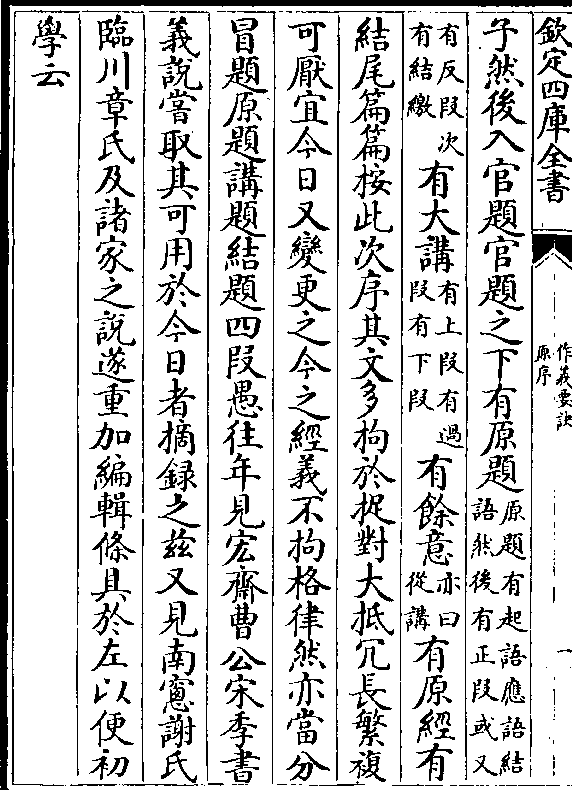 欽定四庫全書
作義要訣
原序
一
子然後入官題官題之下有原題原題有起語應語結語然後有正段或又
有反段次有結繳有大講有上段有過段有下段有餘意亦曰從講有原經有
結尾篇篇按此次序其文多拘於捉對大抵冗長繁複
可厭宜今日又變更之今之經義不拘格律然亦當分
冒題原題講題結題四段愚往年見宏齋曹公宋季書
義說嘗取其可用於今日者摘録之兹又見南窻謝氏
臨川章氏及諸家之說遂重加編輯條具於左以便初
學云